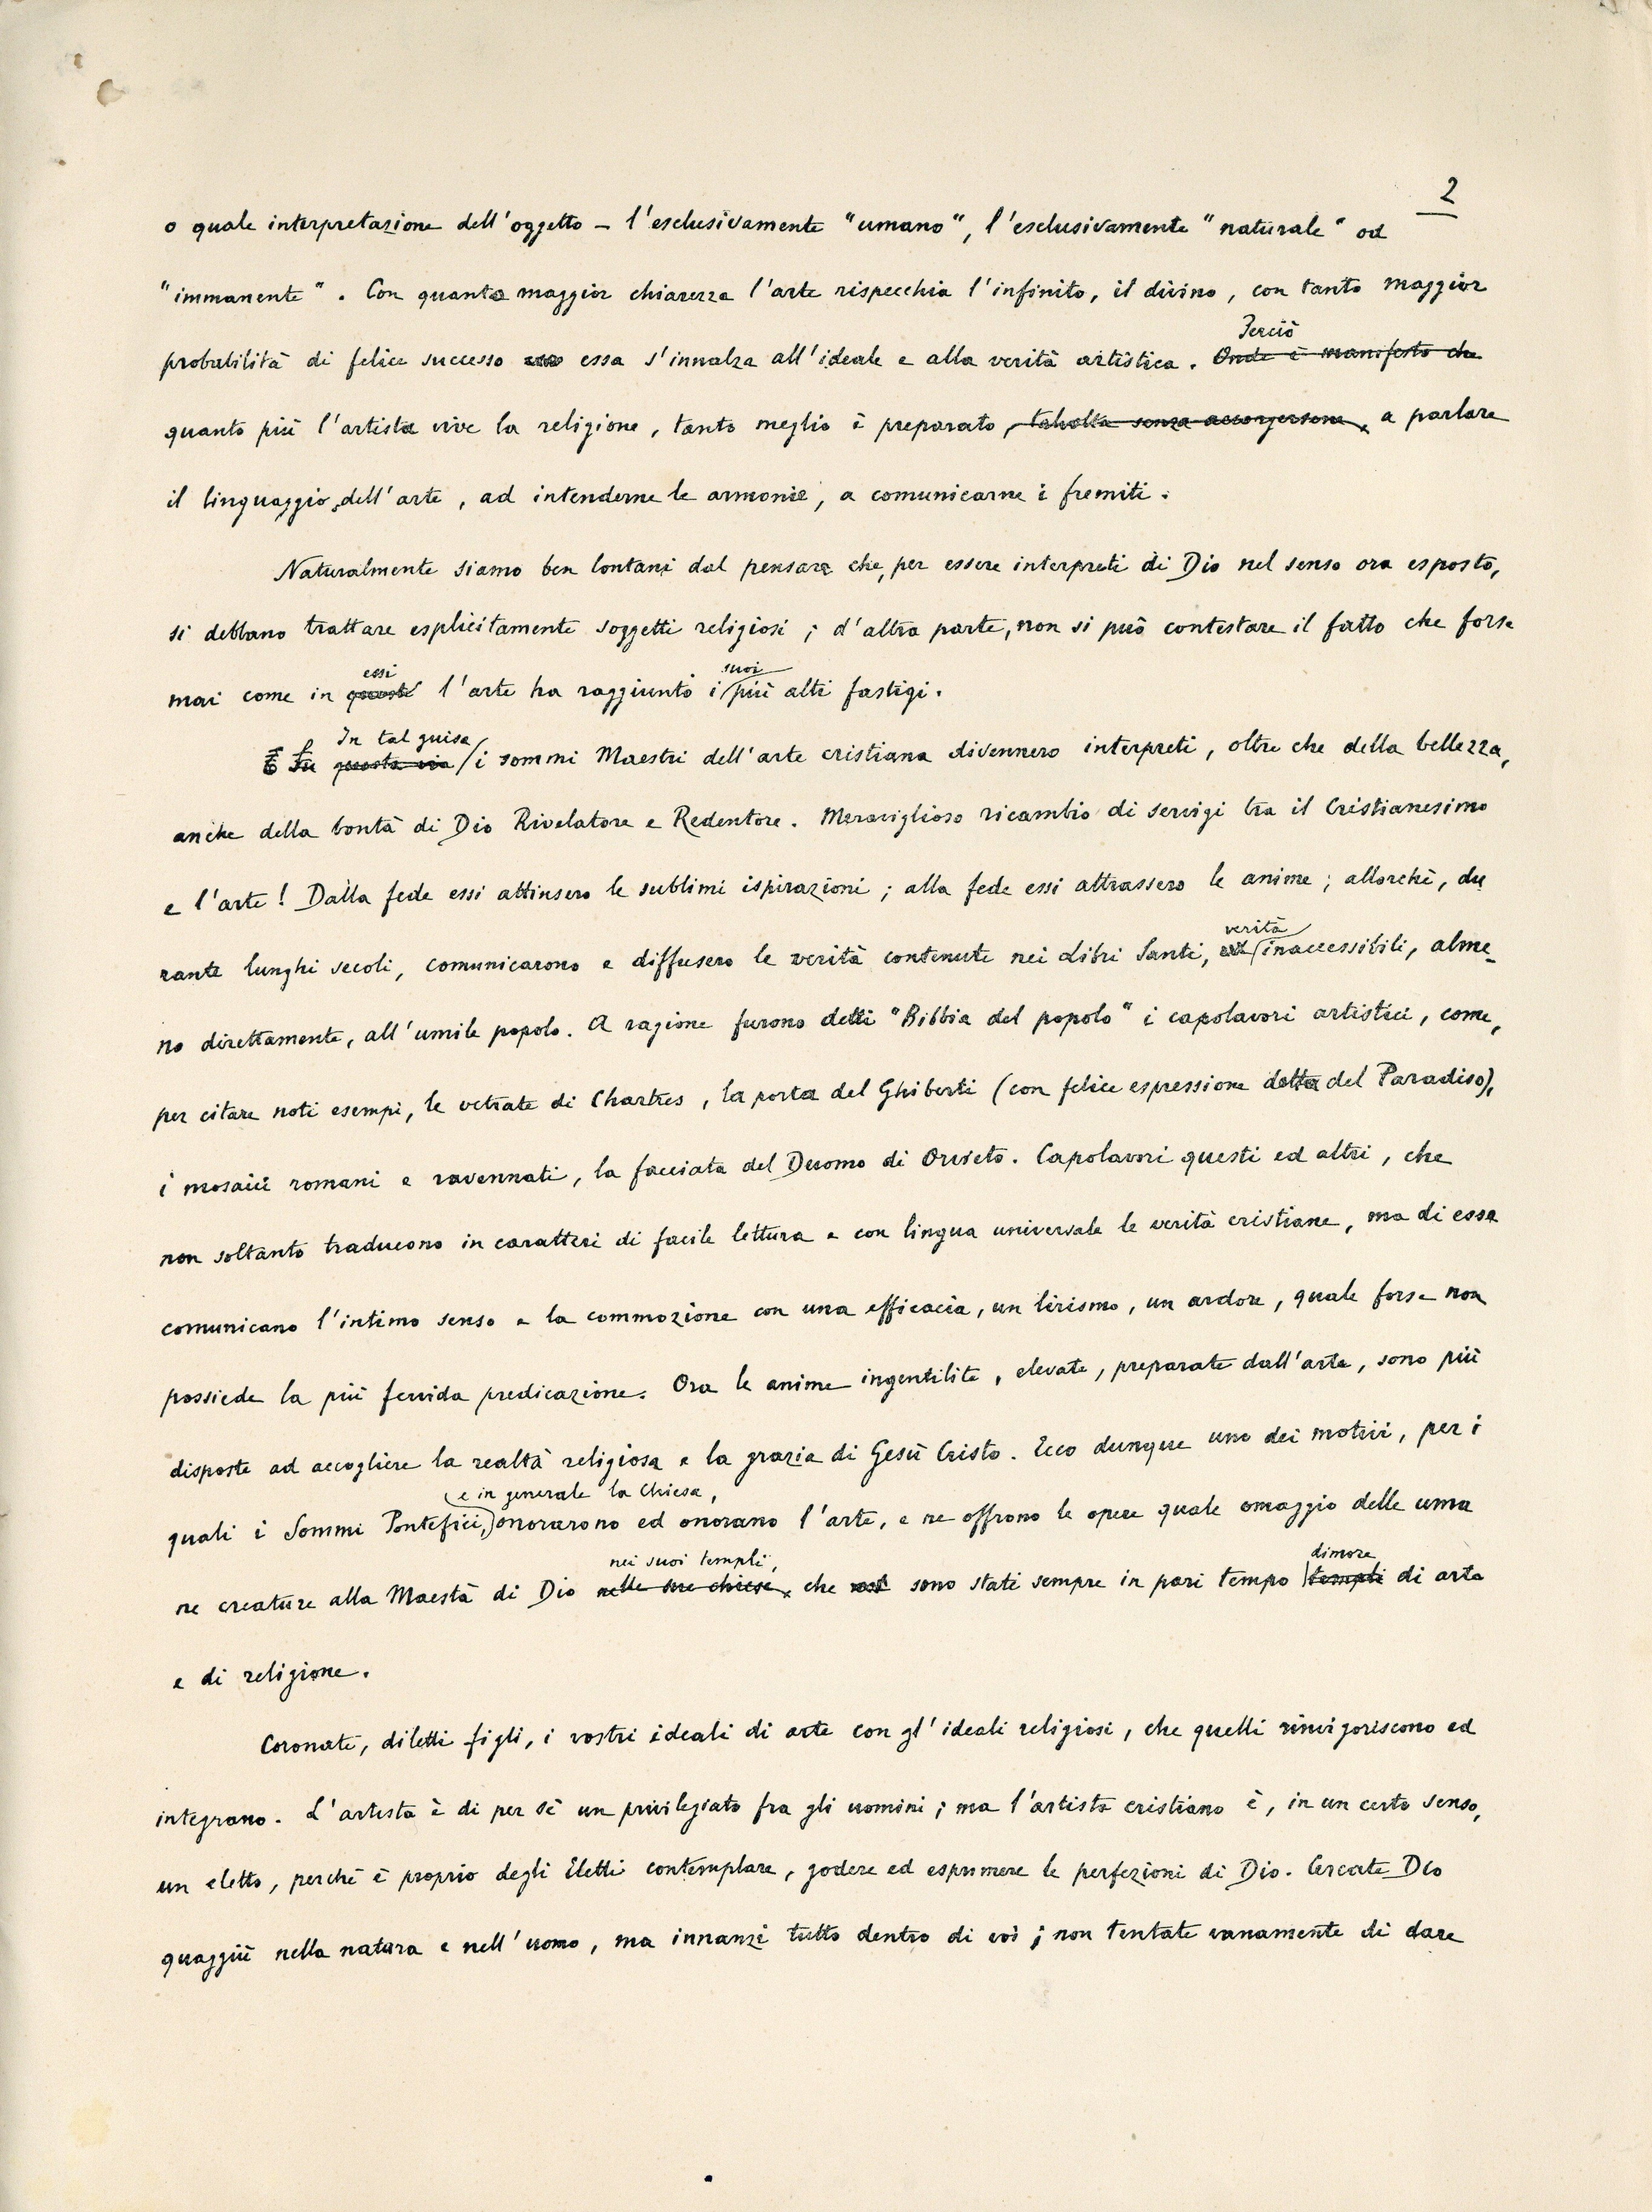 2
o quale interpretazione dell'oggetto – l'esclusivamente "umano", l'esclusivamente "naturale" od
"immanente". Con quanta maggior chiarezza l'arte rispecchia l'infinito, il divino, con tanta maggior
Perciò
probabilità di felice successo essa s'innalza all'ideale e alla verità artistica. Onde è manifesto che
quanto più l'artista vive la religione, tanto meglio è preparato, talvolta senza accorgersene, a parlare
il linguaggio dell'arte, ad intenderne le armonie, a comunicarne i fremiti.
Naturalmente siamo ben lontani dal pensare che, per essere interpreti di Dio nel senso ora esposto,
si debbano trattare esplicitamente soggetti religiosi; d'altra parte, non si può contestare il fatto che forse
essi suoi
mai come in questi l'arte ha raggiunto i più alti fastigi.
In tal guisa
questa via i sommi Maestri dell'arte cristiana divennero interpreti, oltre che della bellezza,
anche della bontà di Dio Rivelatore e Redentore. Meraviglioso ricambio di servigi tra il Cristianesimo
e l'arte! Dalla fede essi attinsero le sublimi ispirazioni; alla fede essi attrassero le anime; allorchè, du
verità
rante lunghi secoli, comunicarono e diffusero le verità contenute nei Libri Santi, inaccessibili, alme-
no direttamente, all'umile popolo. A ragione furono detti "Bibbia del popolo" i capolavori artistici, come,
per citare noti esempi, le vetrate di Chartres, la porta del Ghiberti (con felice espressione detta del Paradiso),
i mosaici romani e ravennati, la facciata del Duomo di Orvieto. Capolavori questi ed altri, che
non soltanto traducono in caratteri di facile lettura e con lingua universale le verità cristiane, ma di esse
comunicano l'intimo senso e la commozione con una efficacia, un lirismo, un ardore, quale forse non
possiede la più fervida predicazione. Ora le anime ingentilite, elevate, preparate dall'arte, sono più
disposte ad accogliere la realtà religiosa e la grazia di Gesù Cristo. Ecco dunque uno dei motivi, per i
e in generale la Chiesa,
quali i Sommi Pontefici, onorarono ed onorano l'arte, e ne offrono le opere quale omaggio delle uma
nei suoi templi, dimore
ne creature alla Maestà di Dio nelle sue chiese, che sono stati sempre in pari tempo templi di arte
e di religione.
Coronate, diletti figli, i vostri ideali di arte con gl'ideali religiosi, che quelli rinvigoriscono ed
integrano. L'artista è di per sè un privilegiato fra gli uomini; ma l'artista cristiano è, in un certo senso,
un eletto, perchè è proprio degli Eletti contemplare, godere ed esprimere le perfezioni di Dio. Cercate Dio
quaggiù nella natura e nell'uomo, ma innanzi tutto dentro di voi; non tentate vanamente di dare